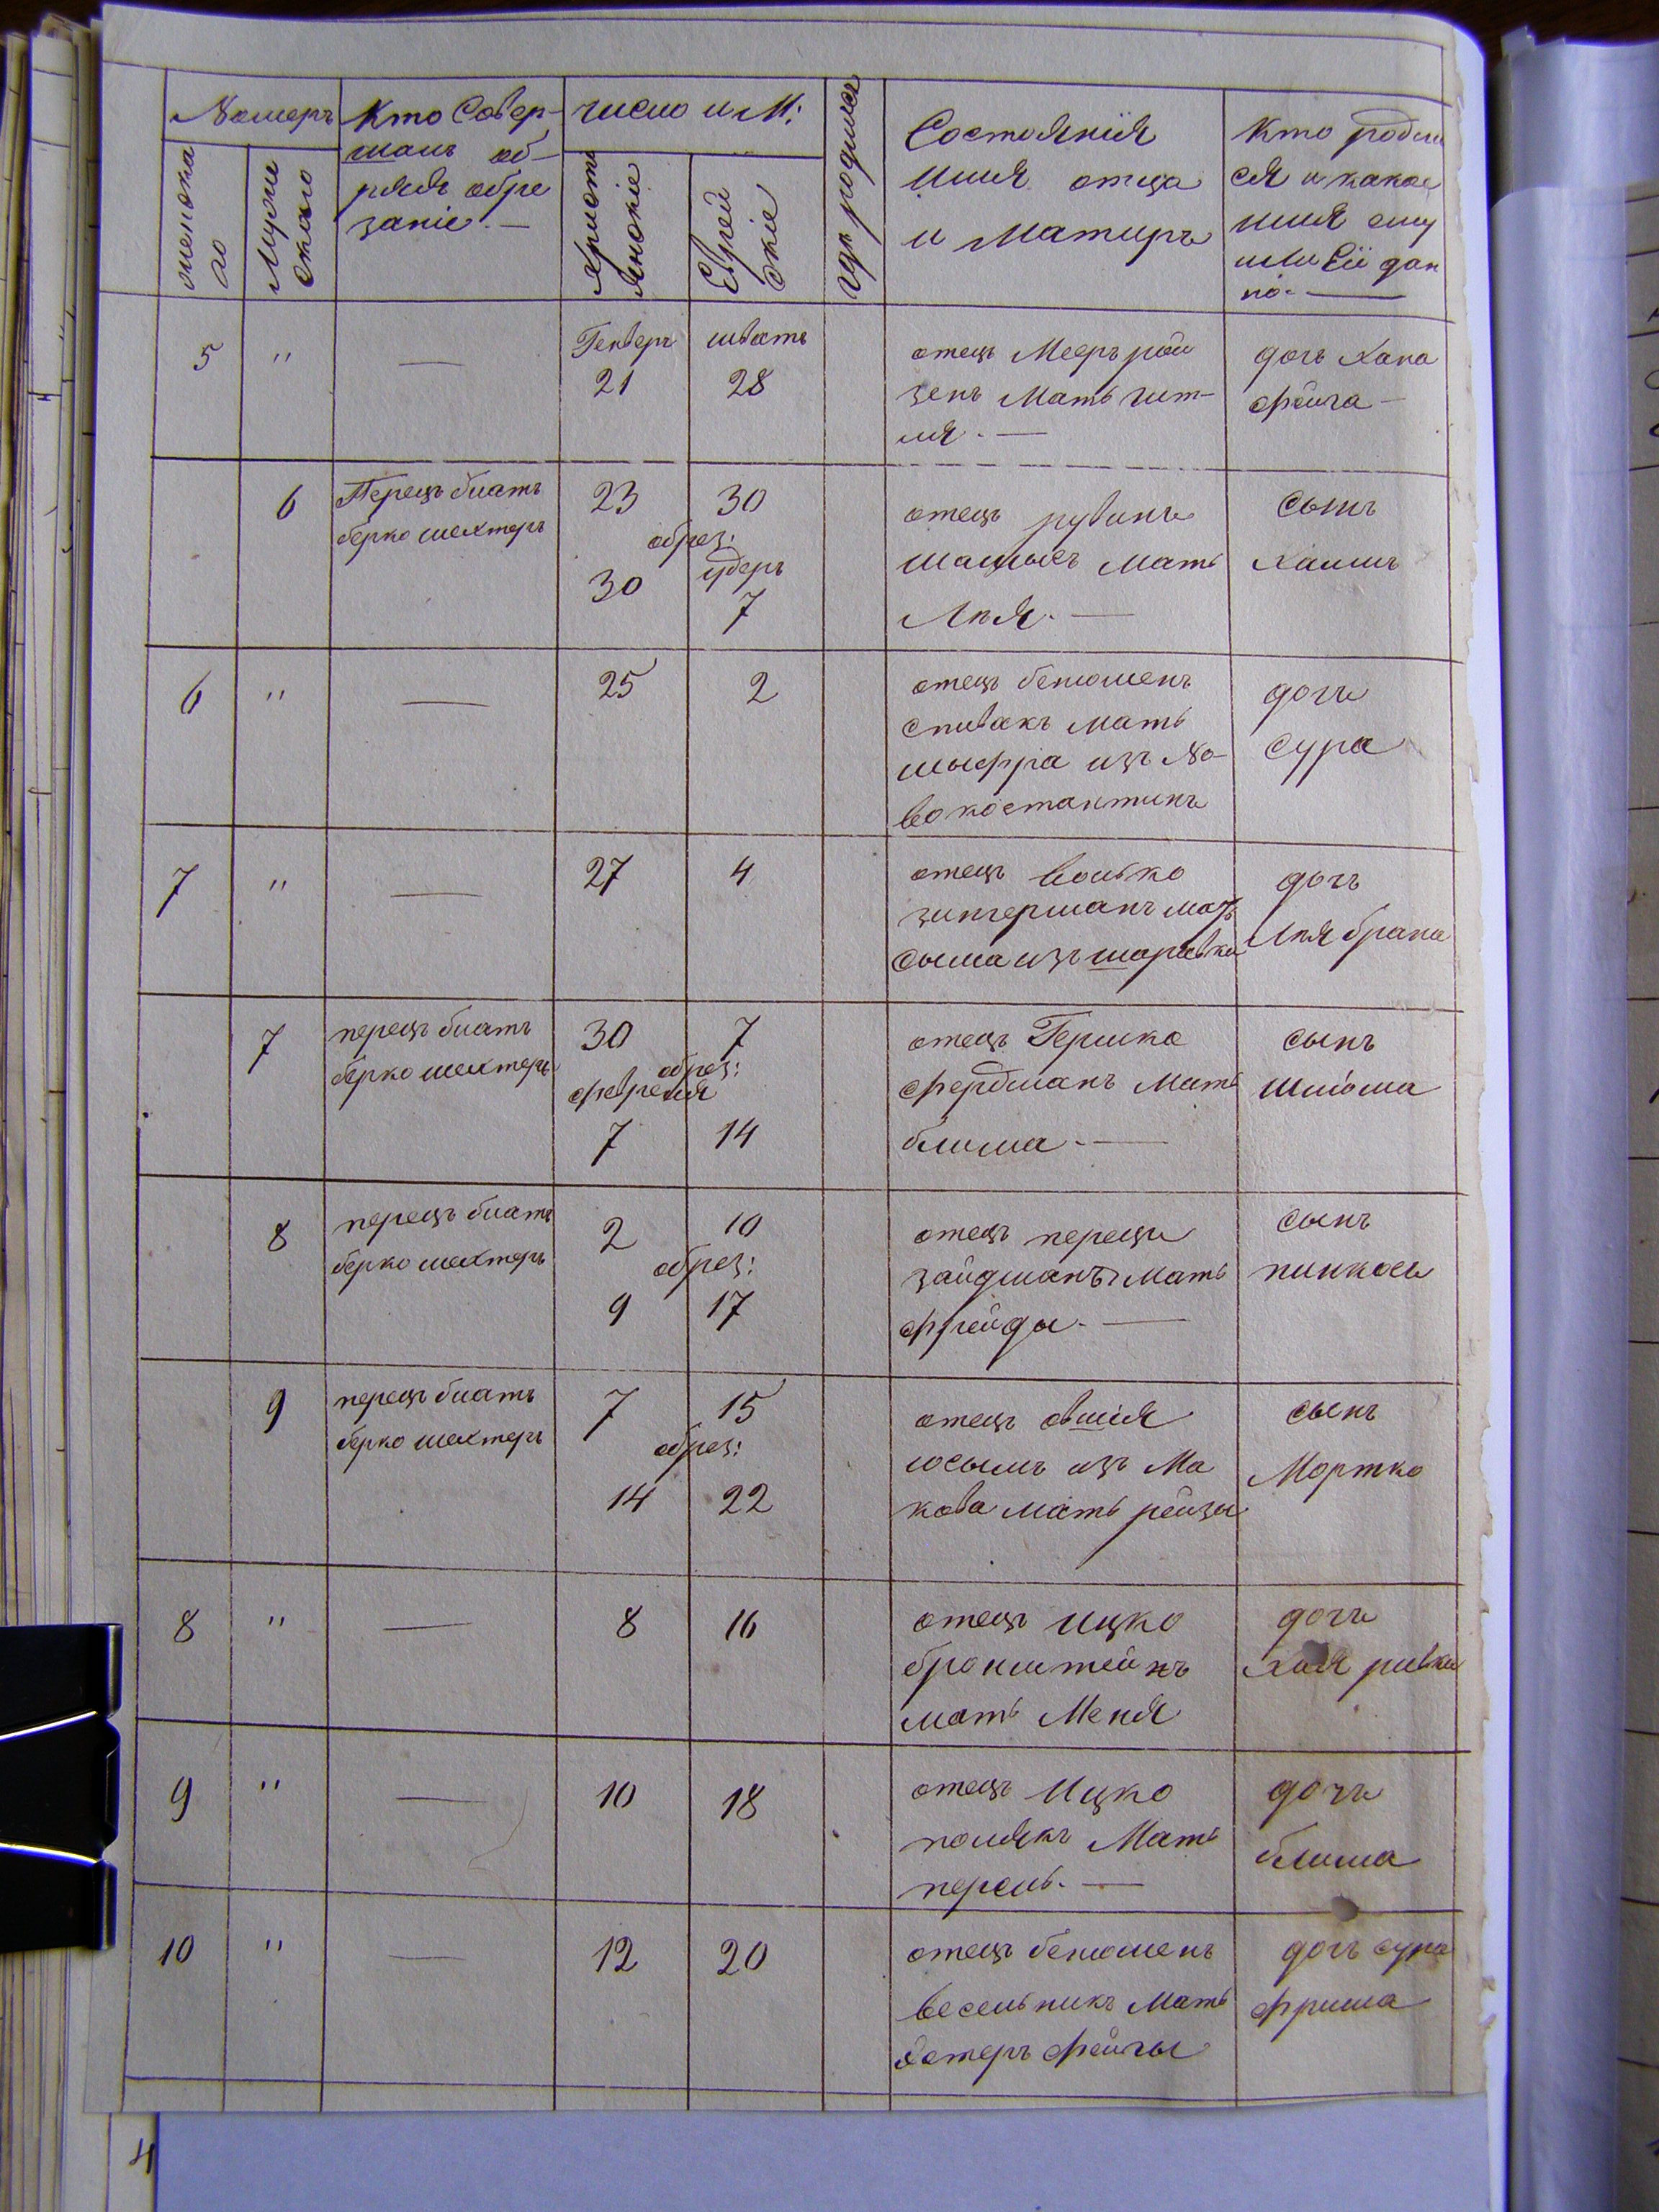 Номеръ
женска
го
Мужи
скаго
Кто Совер-
шалъ об-
рядъ обре
заніе. —
число и М:
христи
янскіе
Еврей
скіе
где родился
Состоянія
имя отца
и Матиръ
Кто родил
ся и какое
имя ему
или Ей дан
но. —
5 " — Генверъ 21 шватъ 28
отецъ Мееръ рой
зенъ Мать гит-
ля. —
дочь Хана
фейга —
6 Перецъ блатъ
берко шехтеръ
23 30
обрез:
30 удеръ 7
отецъ рувинъ
Мать
Лея. —
сынъ
Хаимъ
6 " — 25 2
отецъ бенюменъ
спивакъ мать
шыфра изъ Но-
вокостантинъ
дочь
сура
7 " — 27 4
отецъ волько
зингерманъ мать
сыма изъ шаровки
дочь
Лея брана
7 перецъ блатъ
берко шехтеръ
30 7
обрез:
февреля
7 14
отецъ Гершко
фердманъ Мать
блима —
сынъ
шліома
8 перецъ блатъ
берко шехтеръ
2 10
обрез:
9 17
отецъ перецъ
зайдманъ Мать
фрейда. —
сынъ
пинкась
9 перецъ блатъ
берко шехтеръ
7 15
обрез:
14 22
отецъ овшія
юсымъ изъ Ма
кова Мать рейзы
сынъ
Мортко
8 " — 8 16
отецъ Ицко
бронштейнъ
мать Меня
дочь
Хая ривка
9 " — 10 18
отецъ Ицко
полякъ Мать
перель. —
дочь
блима
10 " — 12 20
отецъ бенюменъ
весельникъ Мать
естеръ фейгы
дочь сура
фрима
4